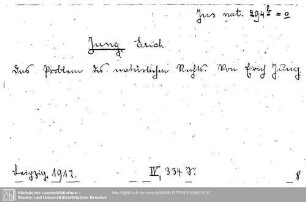 Jus nat. 294
Jung Erich
Das Problem des natürlichen Rechts. Von Erich Jung
Leipzig, 1912. IV, 334 S. 8
Sächsische Landesbibliothek –
Staats- und Universitätsbibliothek Dresden